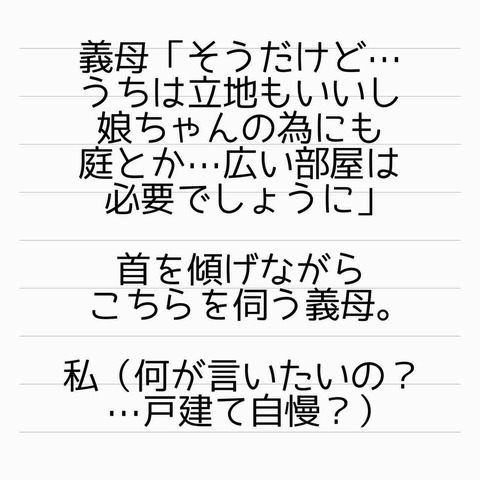 義母「そうだけど…
うちは立地もいいし
娘ちゃんの為にも
庭とか…広い部屋は
必要でしょうに」
首を傾げながら
こちらを伺う義母。
私（何が言いたいの？
…戸建て自慢？）